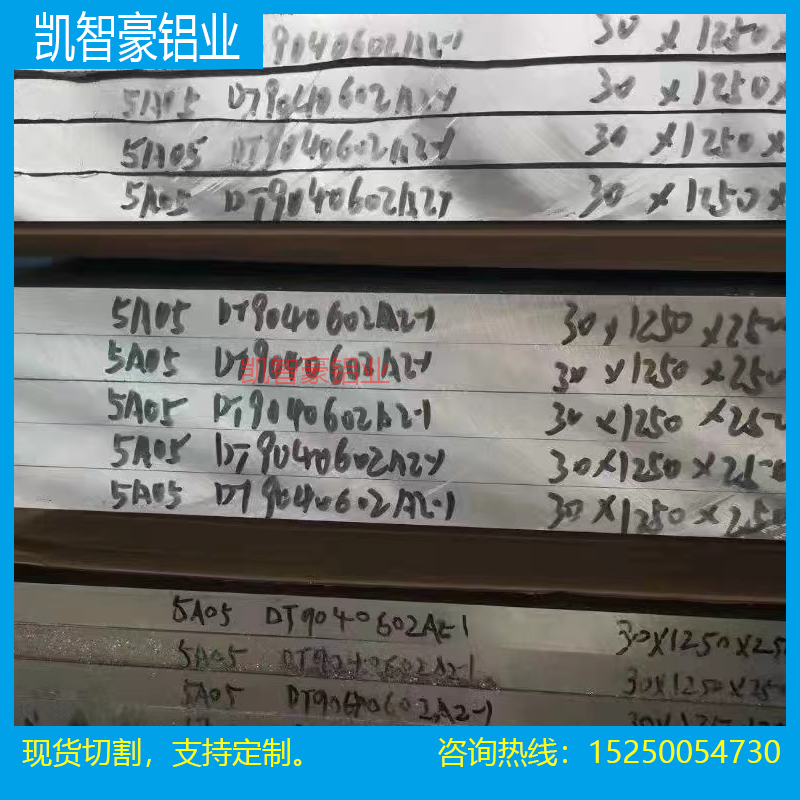 凯智豪铝业
9040602A2-1 30×1250×
5A05 DT9040602A2-1 30×1250×
5A05 DT9040602A2-1 30×1250×
5A05 DT9040602A2-1 30×1250×
5A05 DT9040602A2-1 30×1250×250
凯智豪铝业
5A05 DT9040602A2-1 30×1250×250
5A05 DT9040602A2-1 30×1250×250
5A05 DT9040602A2-1 30×1250×250
5A05 DT9040602A2-1 30×1250×250
5A05 DT9040602A2-1 30×1250×25
5A05 DT9040602A2-1 30×1250×250
5A05 DT9040602A2-1 30×1250×250
现货切割，支持定制。 咨询热线：15250054730